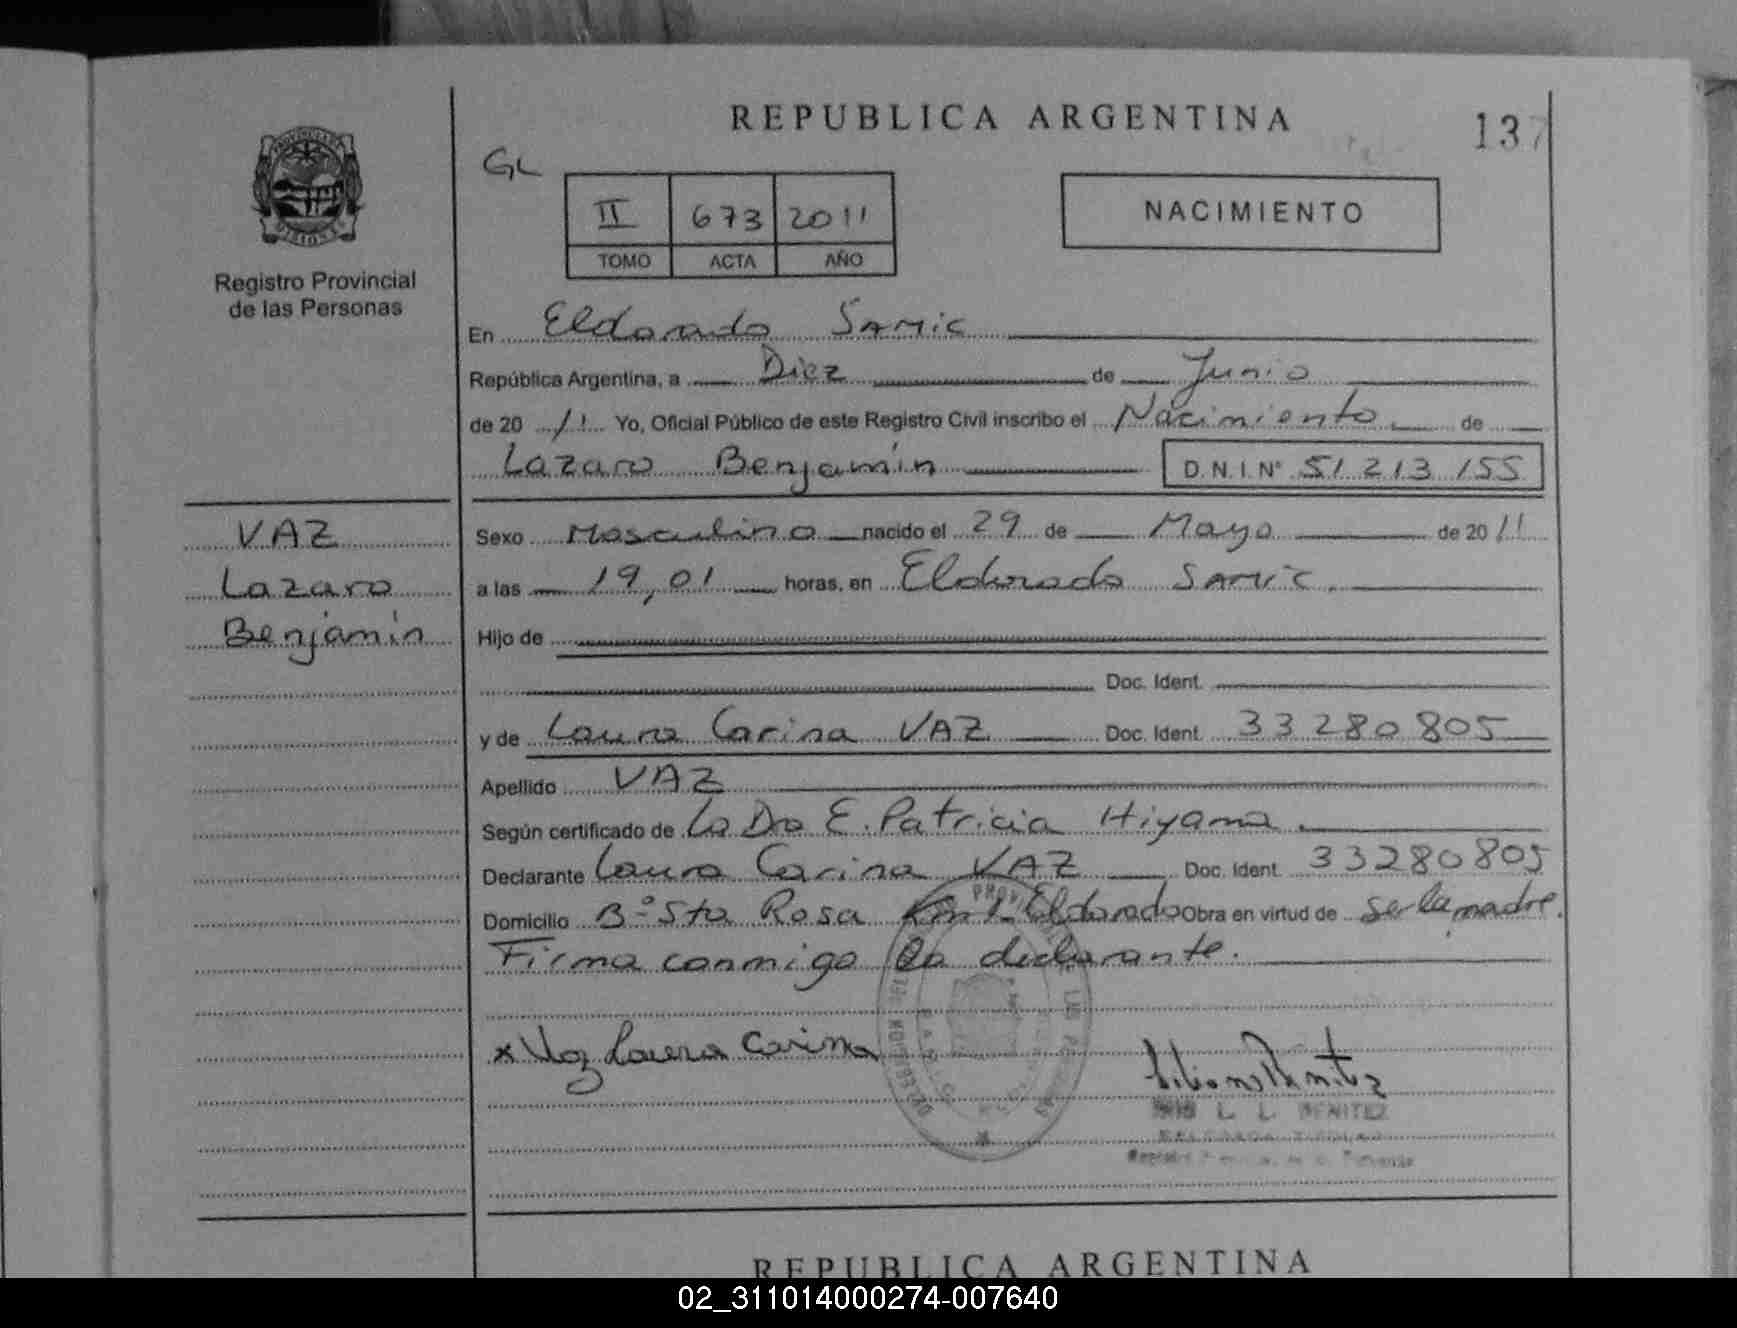 REPUBLICA ARGENTINA
137
GL
II 673 2011
TOMO ACTA AÑO
NACIMIENTO
Registro Provincial
de las Personas
En Eldorado SAMIC
República Argentina, a Diez de Junio
de 20 11 Yo, Oficial Público de este Registro Civil inscribo el Nacimiento de
Lazaro Benjamín D.N.I. Nº 51 213 155
VAZ
Lazaro
Benjamín
Sexo Masculino nacido el 29 de Mayo de 20 11
a las 19,01 horas, en Eldorado SAMIC.
Hijo de
Doc. Ident.
y de Laura Carina VAZ Doc. Ident. 33 280 805
Apellido VAZ
Según certificado de La Dra E. Patricia Hiyama.
Declarante Laura Carina VAZ Doc. Ident. 33280805
Domicilio Bº Sta Rosa Km 1 Eldorado Obra en virtud de Ser la madre.
Firma conmigo la declarante.
x Vaz Laura Carina
L. L. BENITEZ
REPUBLICA ARGENTINA
02_311014000274-007640